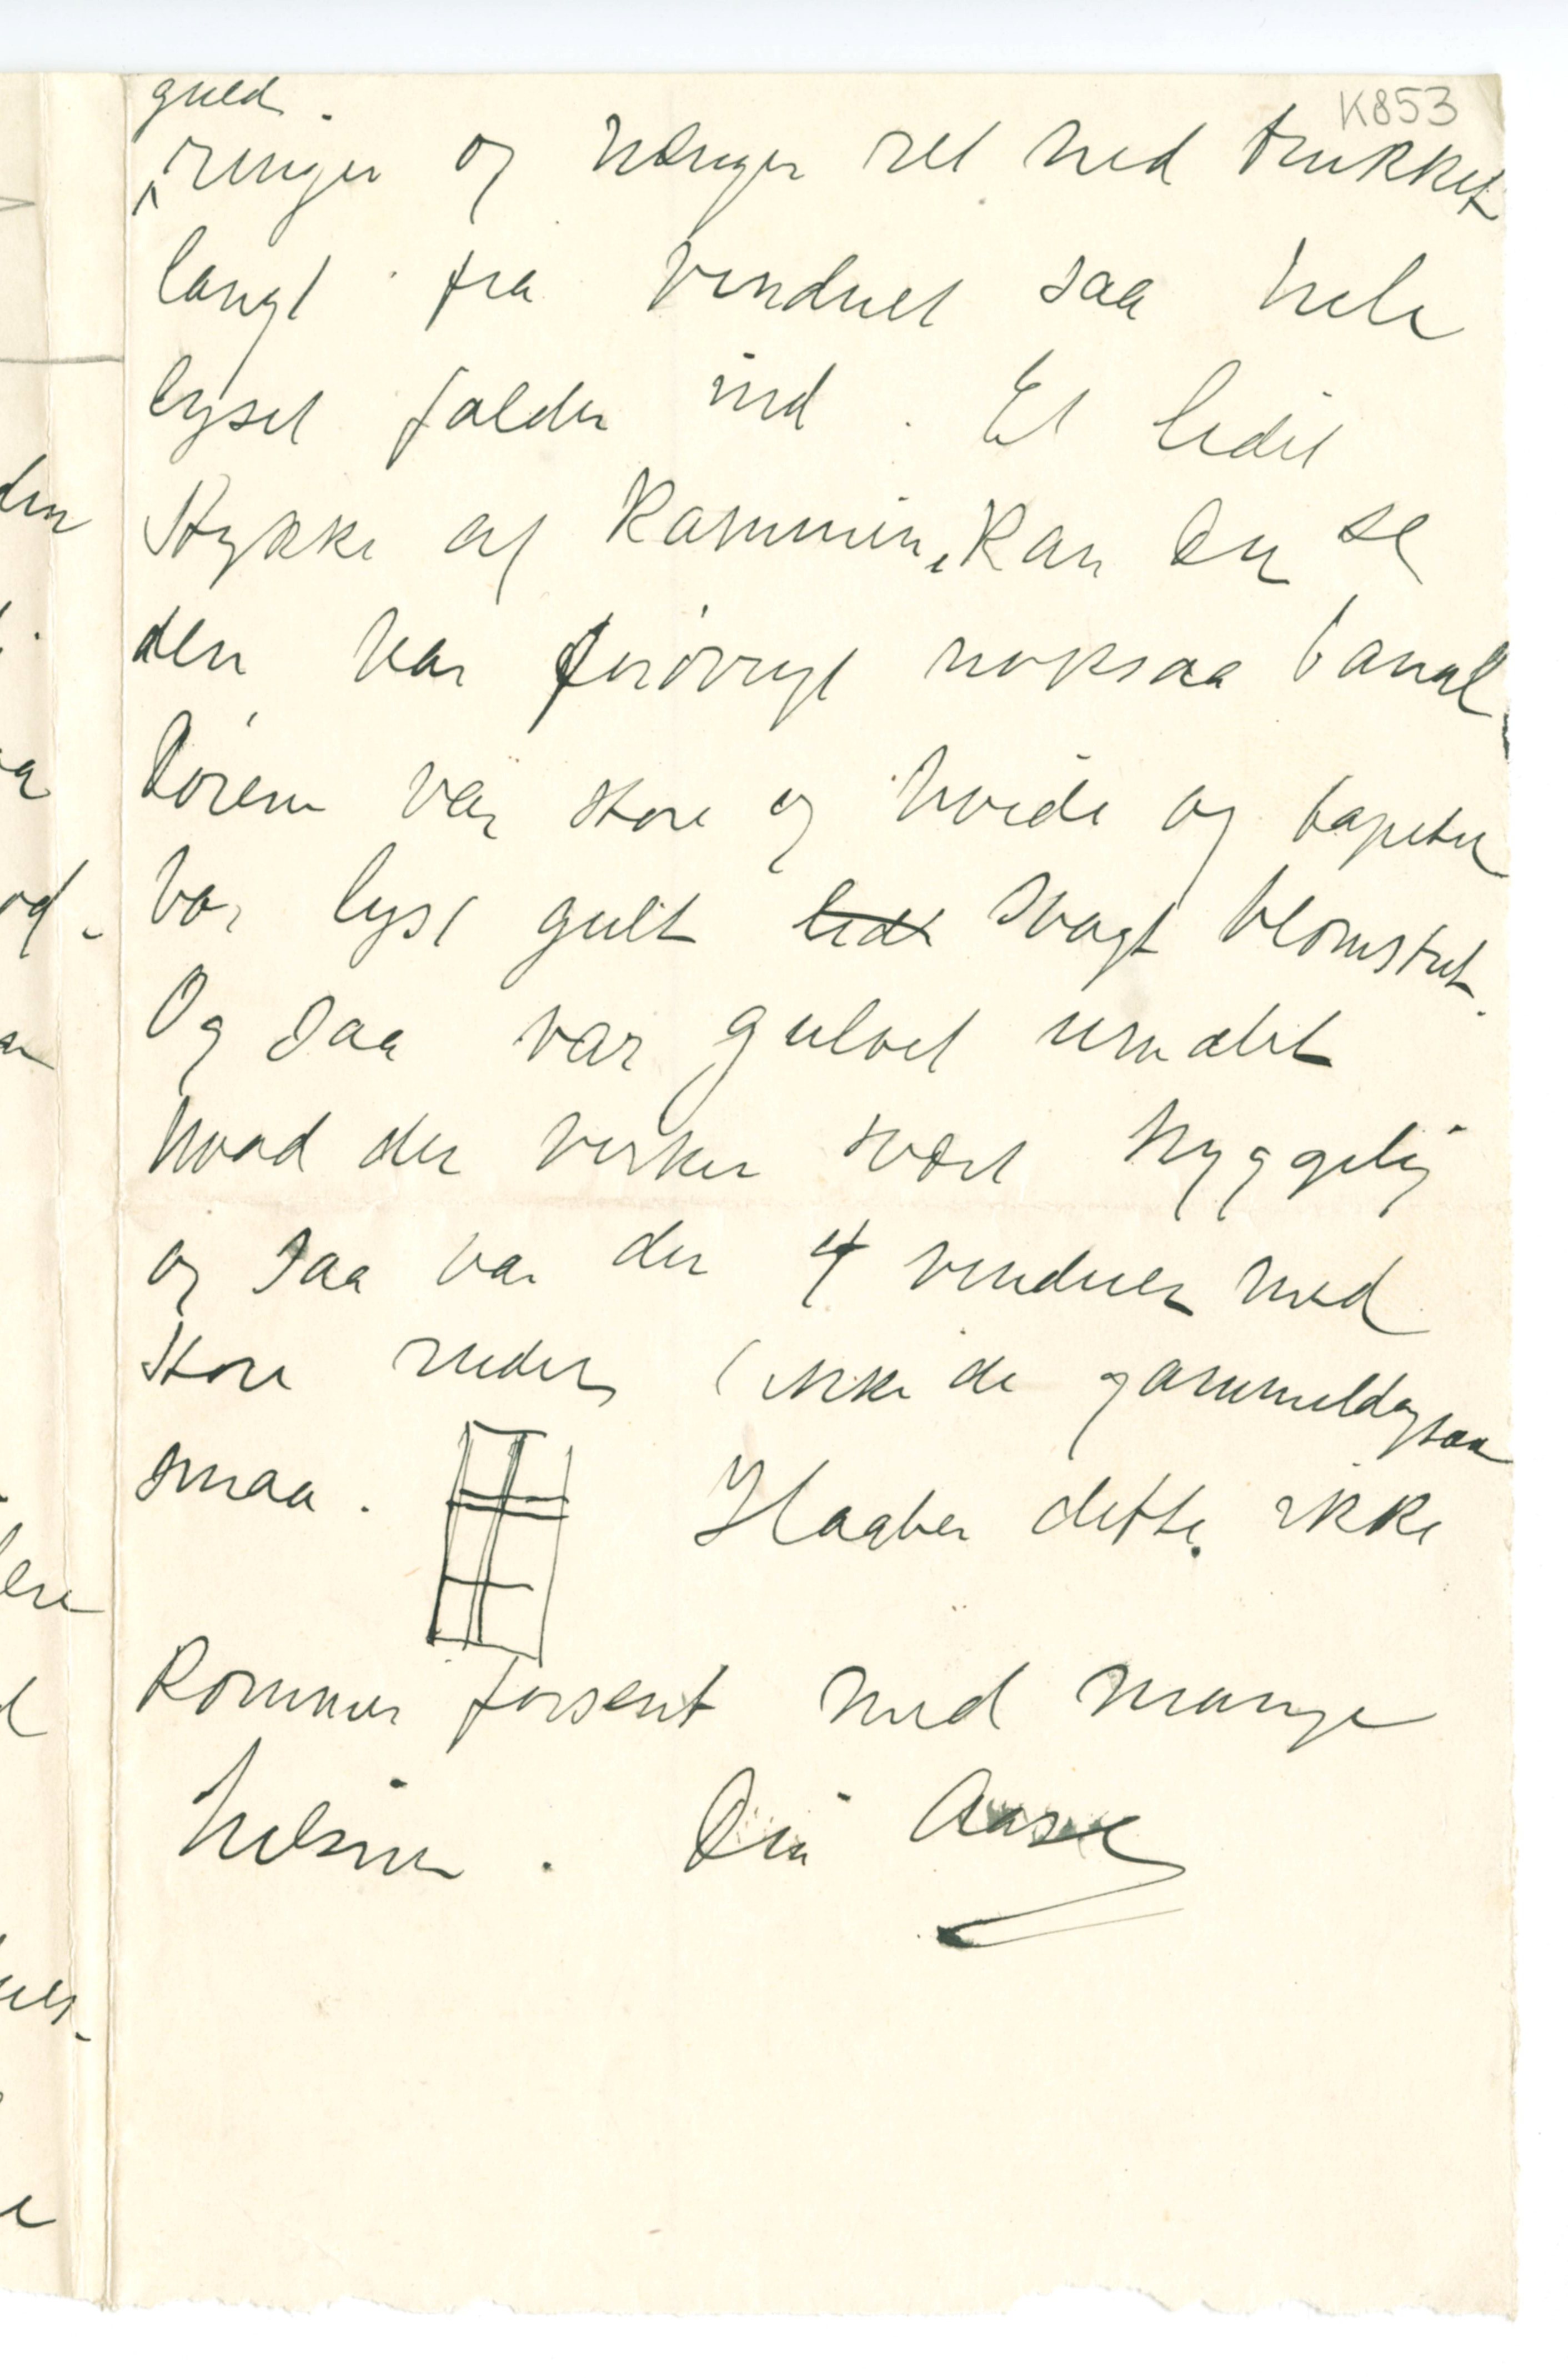 K853
guld.
ringer og hænger ret ned trukket
langt fra vinduet saa hele
lyset falder ind. Et lidet
Stykke af Kaminen, Kan Du se
den var forövrigt noksaa banal
Dörene var store og hvide og tapetet
var lyst gult lidt svagt blomstret.
Og saa var gulvet umalet
hvad der virker svært hyggelig
og saa var der 4 vinduer med
store ruder (ikke de gammeldags saa
smaa. Haaber dette ikke
Kommer forsent med mange
hilsner. Din Aase